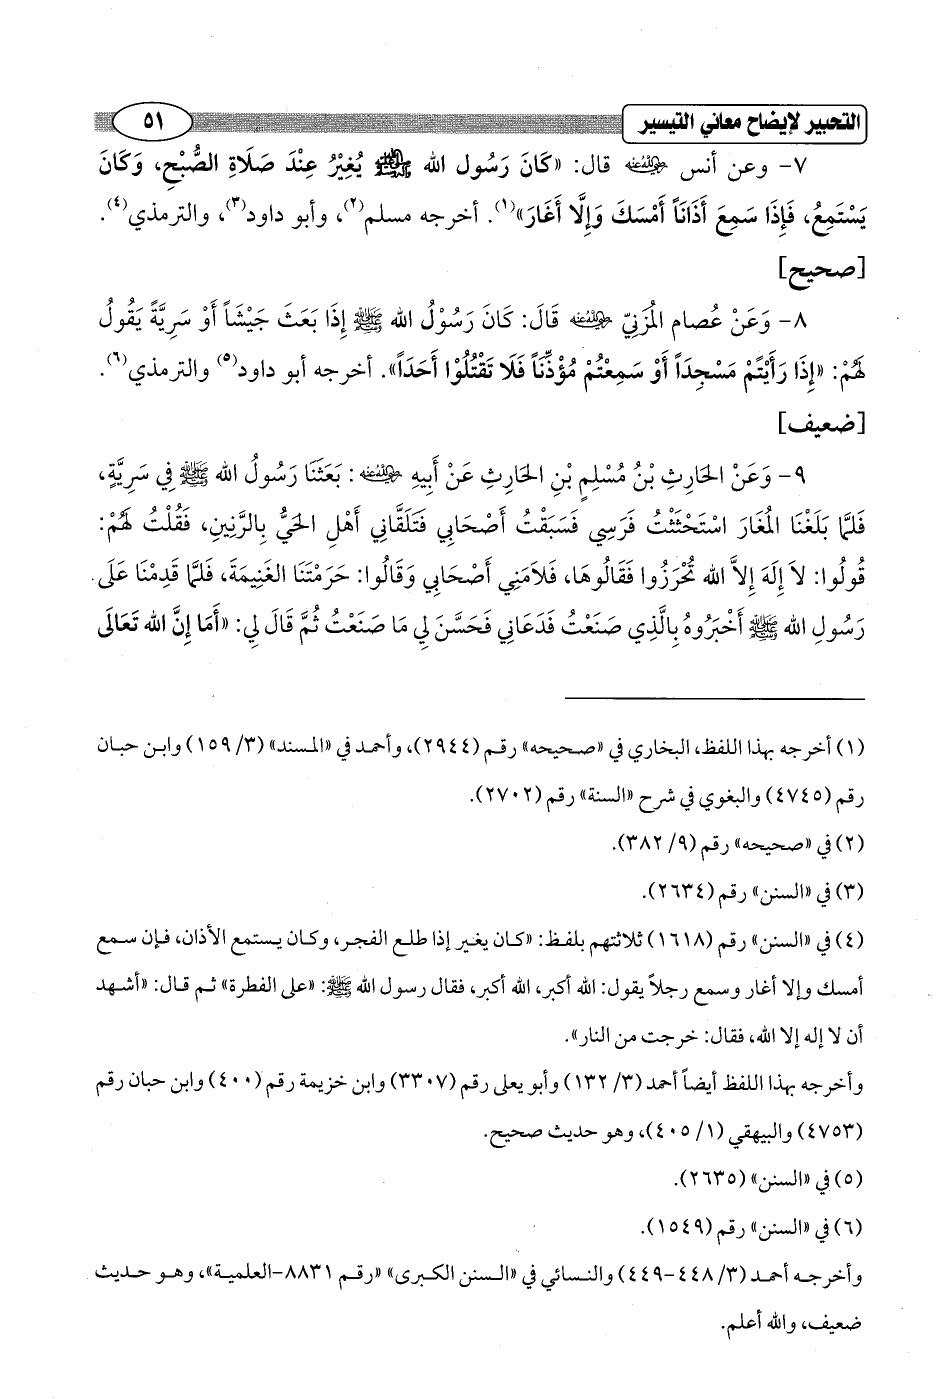 التحبير لإيضاح معاني التيسير
٥١
٧- وعن أنس رضي الله عنه قال: «كَانَ رَسُول الله ﷺ يُغِيْرُ عِنْدَ صَلَاةِ الصُّبْحِ، وَكَانَ
يَسْتَمِعُ، فَإِذَا سَمِعَ أَذَانَاً أَمْسَكَ وَإِلَّا أَغَارَ»(١). أخرجه مسلم(٢)، وأبو داود(٣)، والترمذي(٤).
[صحيح]
٨- وَعَنْ عُصام المُزَنِيّ رضي الله عنه قَالَ: كَانَ رَسُوْلُ الله ﷺ إِذَا بَعَثَ جَيْشَاً أَوْ سَرِيَّةً يَقُولُ
لَهُمْ: «إِذَا رَأَيْتُمْ مَسْجِدَاً أَوْ سَمِعْتُمْ مُؤْذِّنَاً فَلَا تَقْتُلُوْا أَحَدَاً». أخرجه أبو داود(٥) والترمذي(٦).
[ضعيف]
٩- وَعَنْ الحَارِثِ بْنُ مُسْلِمٍ بْنِ الحَارِثِ عَنْ أَبِيهِ رضي الله عنه: بَعَثَنَا رَسُولُ الله ﷺ فِي سَرِيَّةٍ،
فَلَمَّا بَلَغْنَا المُغَارَ اسْتَحْثَثْتُ فَرَسِي فَسَبَقْتُ أَصْحَابِي فَتَلَقَّانِي أَهْلِ الحَيُّ بِالرَّنِينِ، فَقُلْتُ لَهُمْ:
قُولُوا: لاَ إِلَهَ إِلاَّ الله تُحْرَزُوا فَقَالُوهَا، فَلاَمَنِي أَصْحَابِي وَقَالُوا: حَرَمْتَنَا الغَنِيمَةَ، فَلَمَّا قَدِمْنَا عَلَى
رَسُولِ الله ﷺ أَخْبَرُوهُ بِالَّذِي صَنَعْتُ فَدَعَانِي فَحَسَّنَ لِي مَا صَنَعْتُ ثُمَّ قَالَ لِي: «أَمَا إِنَّ الله تَعَالَى
(١) أخرجه بهذا اللفظ، البخاري في «صحيحه» رقم (٢٩٤٤)، وأحمد في «المسند» (٣/ ١٥٩) وابن حبان
رقم (٤٧٤٥) والبغوي في شرح «السنة» رقم (٢٧٠٢).
(٢) في «صحيحه» رقم (٩/ ٣٨٢).
(٣) في «السنن» رقم (٢٦٣٤).
(٤) في «السنن» رقم (١٦١٨) ثلاثتهم بلفظ: «كان يغير إذا طلع الفجر، وكان يستمع الأذان، فإن سمع
أمسك وإلا أغار وسمع رجلاً يقول: الله أكبر، الله أكبر، فقال رسول الله ﷺ: «على الفطرة» ثم قال: «أشهد
أن لا إله إلا الله، فقال: خرجت من النار».
وأخرجه بهذا اللفظ أيضاً أحمد (٣/ ١٣٢) وأبو يعلى رقم (٣٣٠٧) وابن خزيمة رقم (٤٠٠) وابن حبان رقم
(٤٧٥٣) والبيهقي (١/ ٤٠٥)، وهو حديث صحيح.
(٥) في «السنن» (٢٦٣٥).
(٦) في «السنن» رقم (١٥٤٩).
وأخرجه أحمد (٣/ ٤٤٨-٤٤٩) والنسائي في «السنن الكبرى» «رقم ٨٨٣١-العلمية»، وهو حديث
ضعيف، والله أعلم.